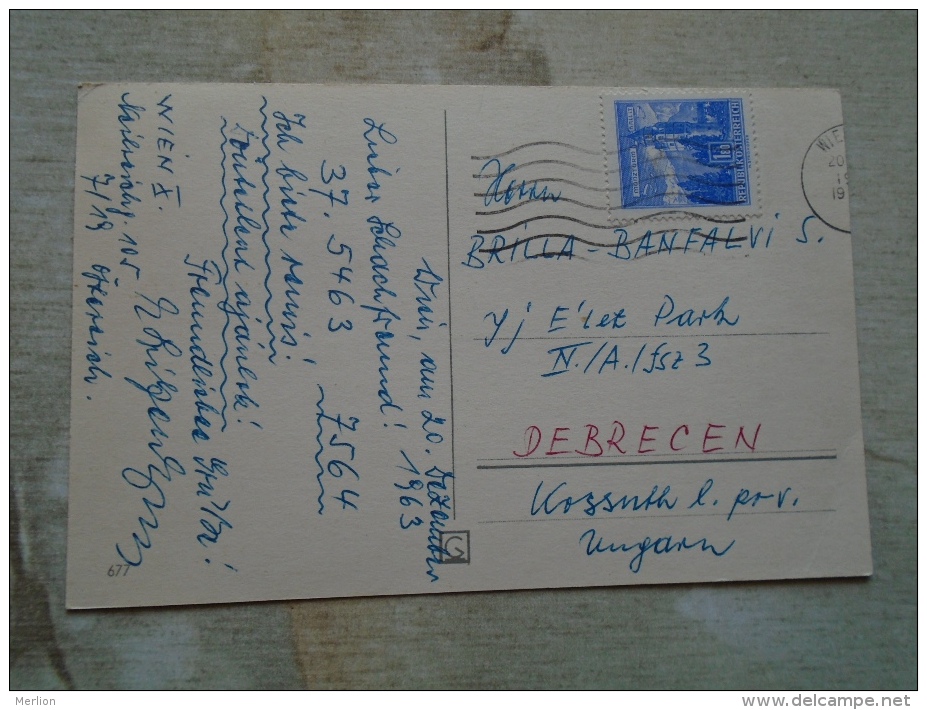 Wien, am 20. Dezember 1963
Lieber Schachfreund!
37. 5463, 7564
Ich bitte remis!
Döntetlent ajánlok!
Freundlichee Grüße!
WIEN X.
7/19 Österreich.
677
REPUBLIK ÖSTERREICH
Herrn
BRILLA-BANFALVI S.
Uj Élet Park
IV./A./fsz 3
DEBRECEN
Kossuth l. prov.
Ungarn
Merlion
www.delcampe.net